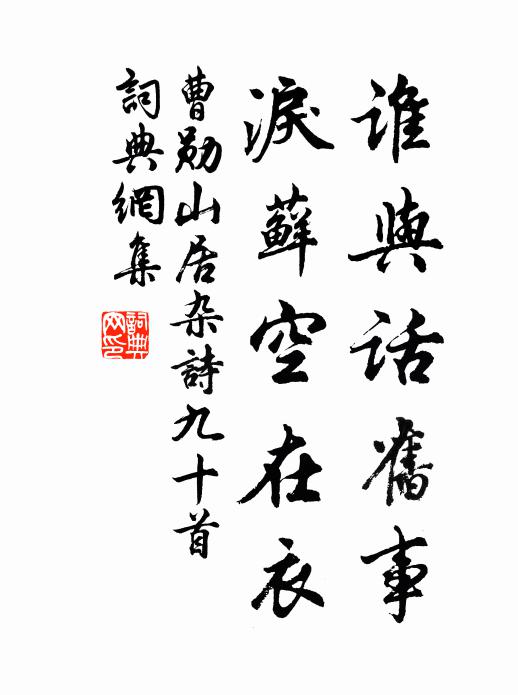 谁與话舊事
淚蘚空在衣
曹勋山居杂詩九十首
詞典網集
詞典網印